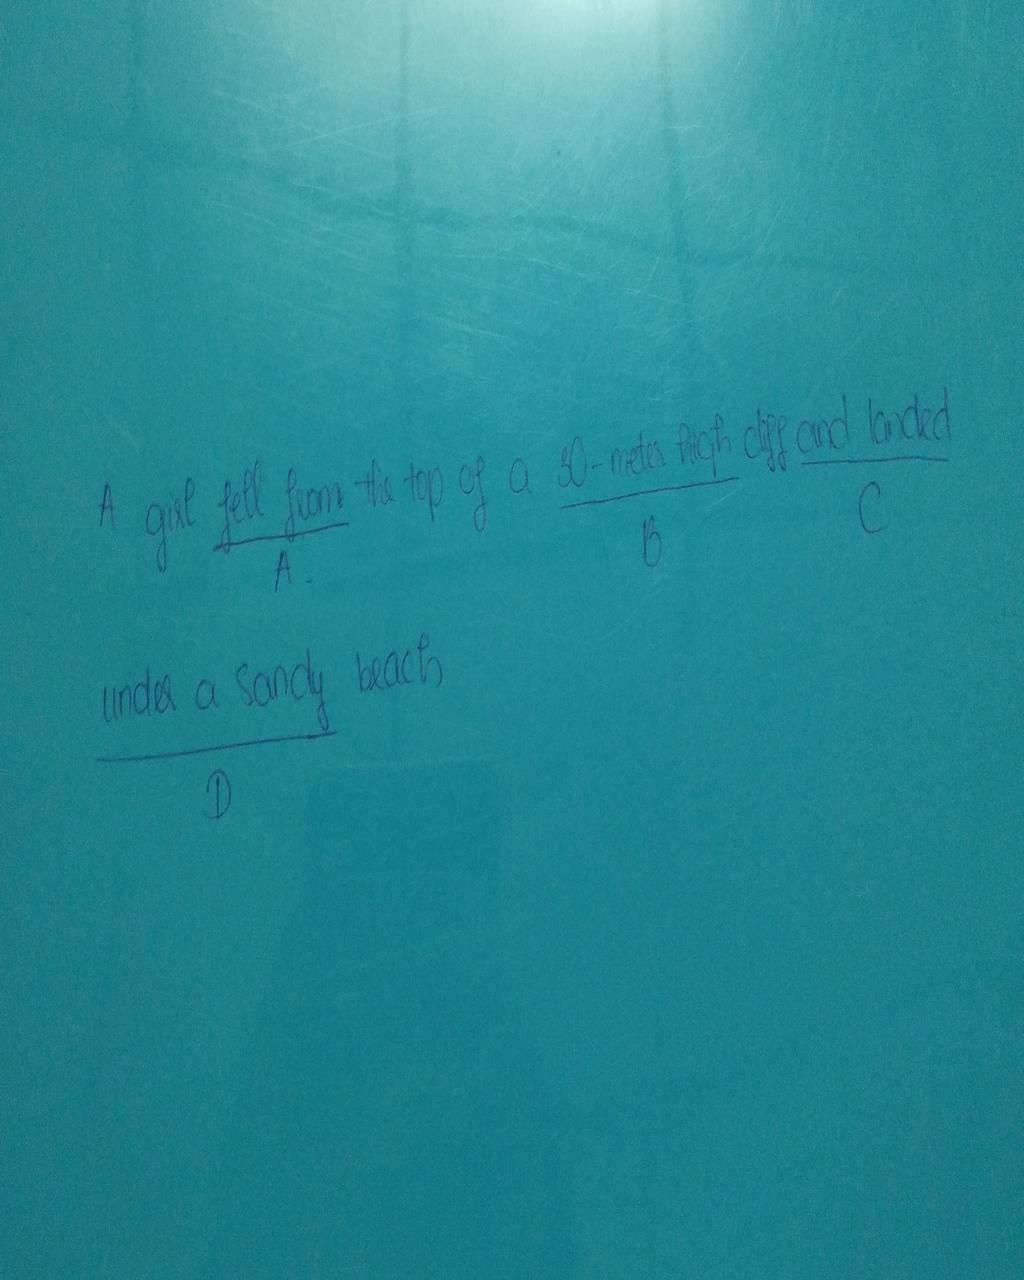 A girl fell from the top of a 30-meter high cliff and landed
A.
B
C
under a sandy beach
D